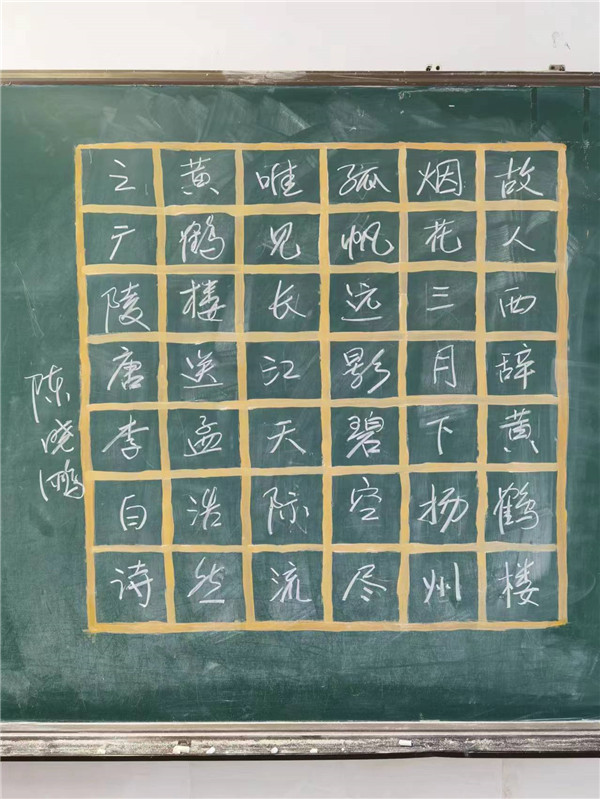 故人西辞黄鹤楼
烟花三月下扬州
孤帆远影碧空尽
唯见长江天际流
黄鹤楼送孟浩然
之广陵唐李白诗
陈晓鹏